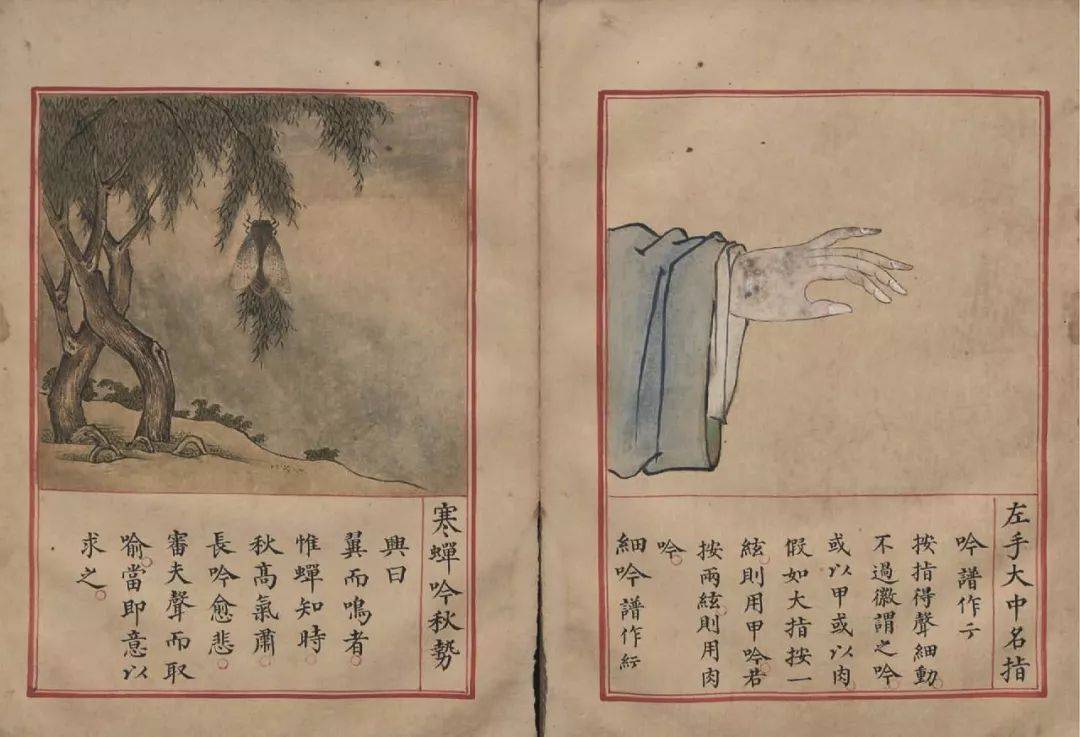 左手大中名指
吟譜作
按指得聲細動。
不過徽謂之吟。
或以甲或以肉。
假如大指按一
絃則用甲吟。若
按兩絃。則用肉
吟。
細吟譜作
寒蟬吟秋勢
興曰
翼而鳴者。
惟蟬知時。
秋高氣肅。
長吟愈悲。
審夫聲而取
喻。當即意以
求之。